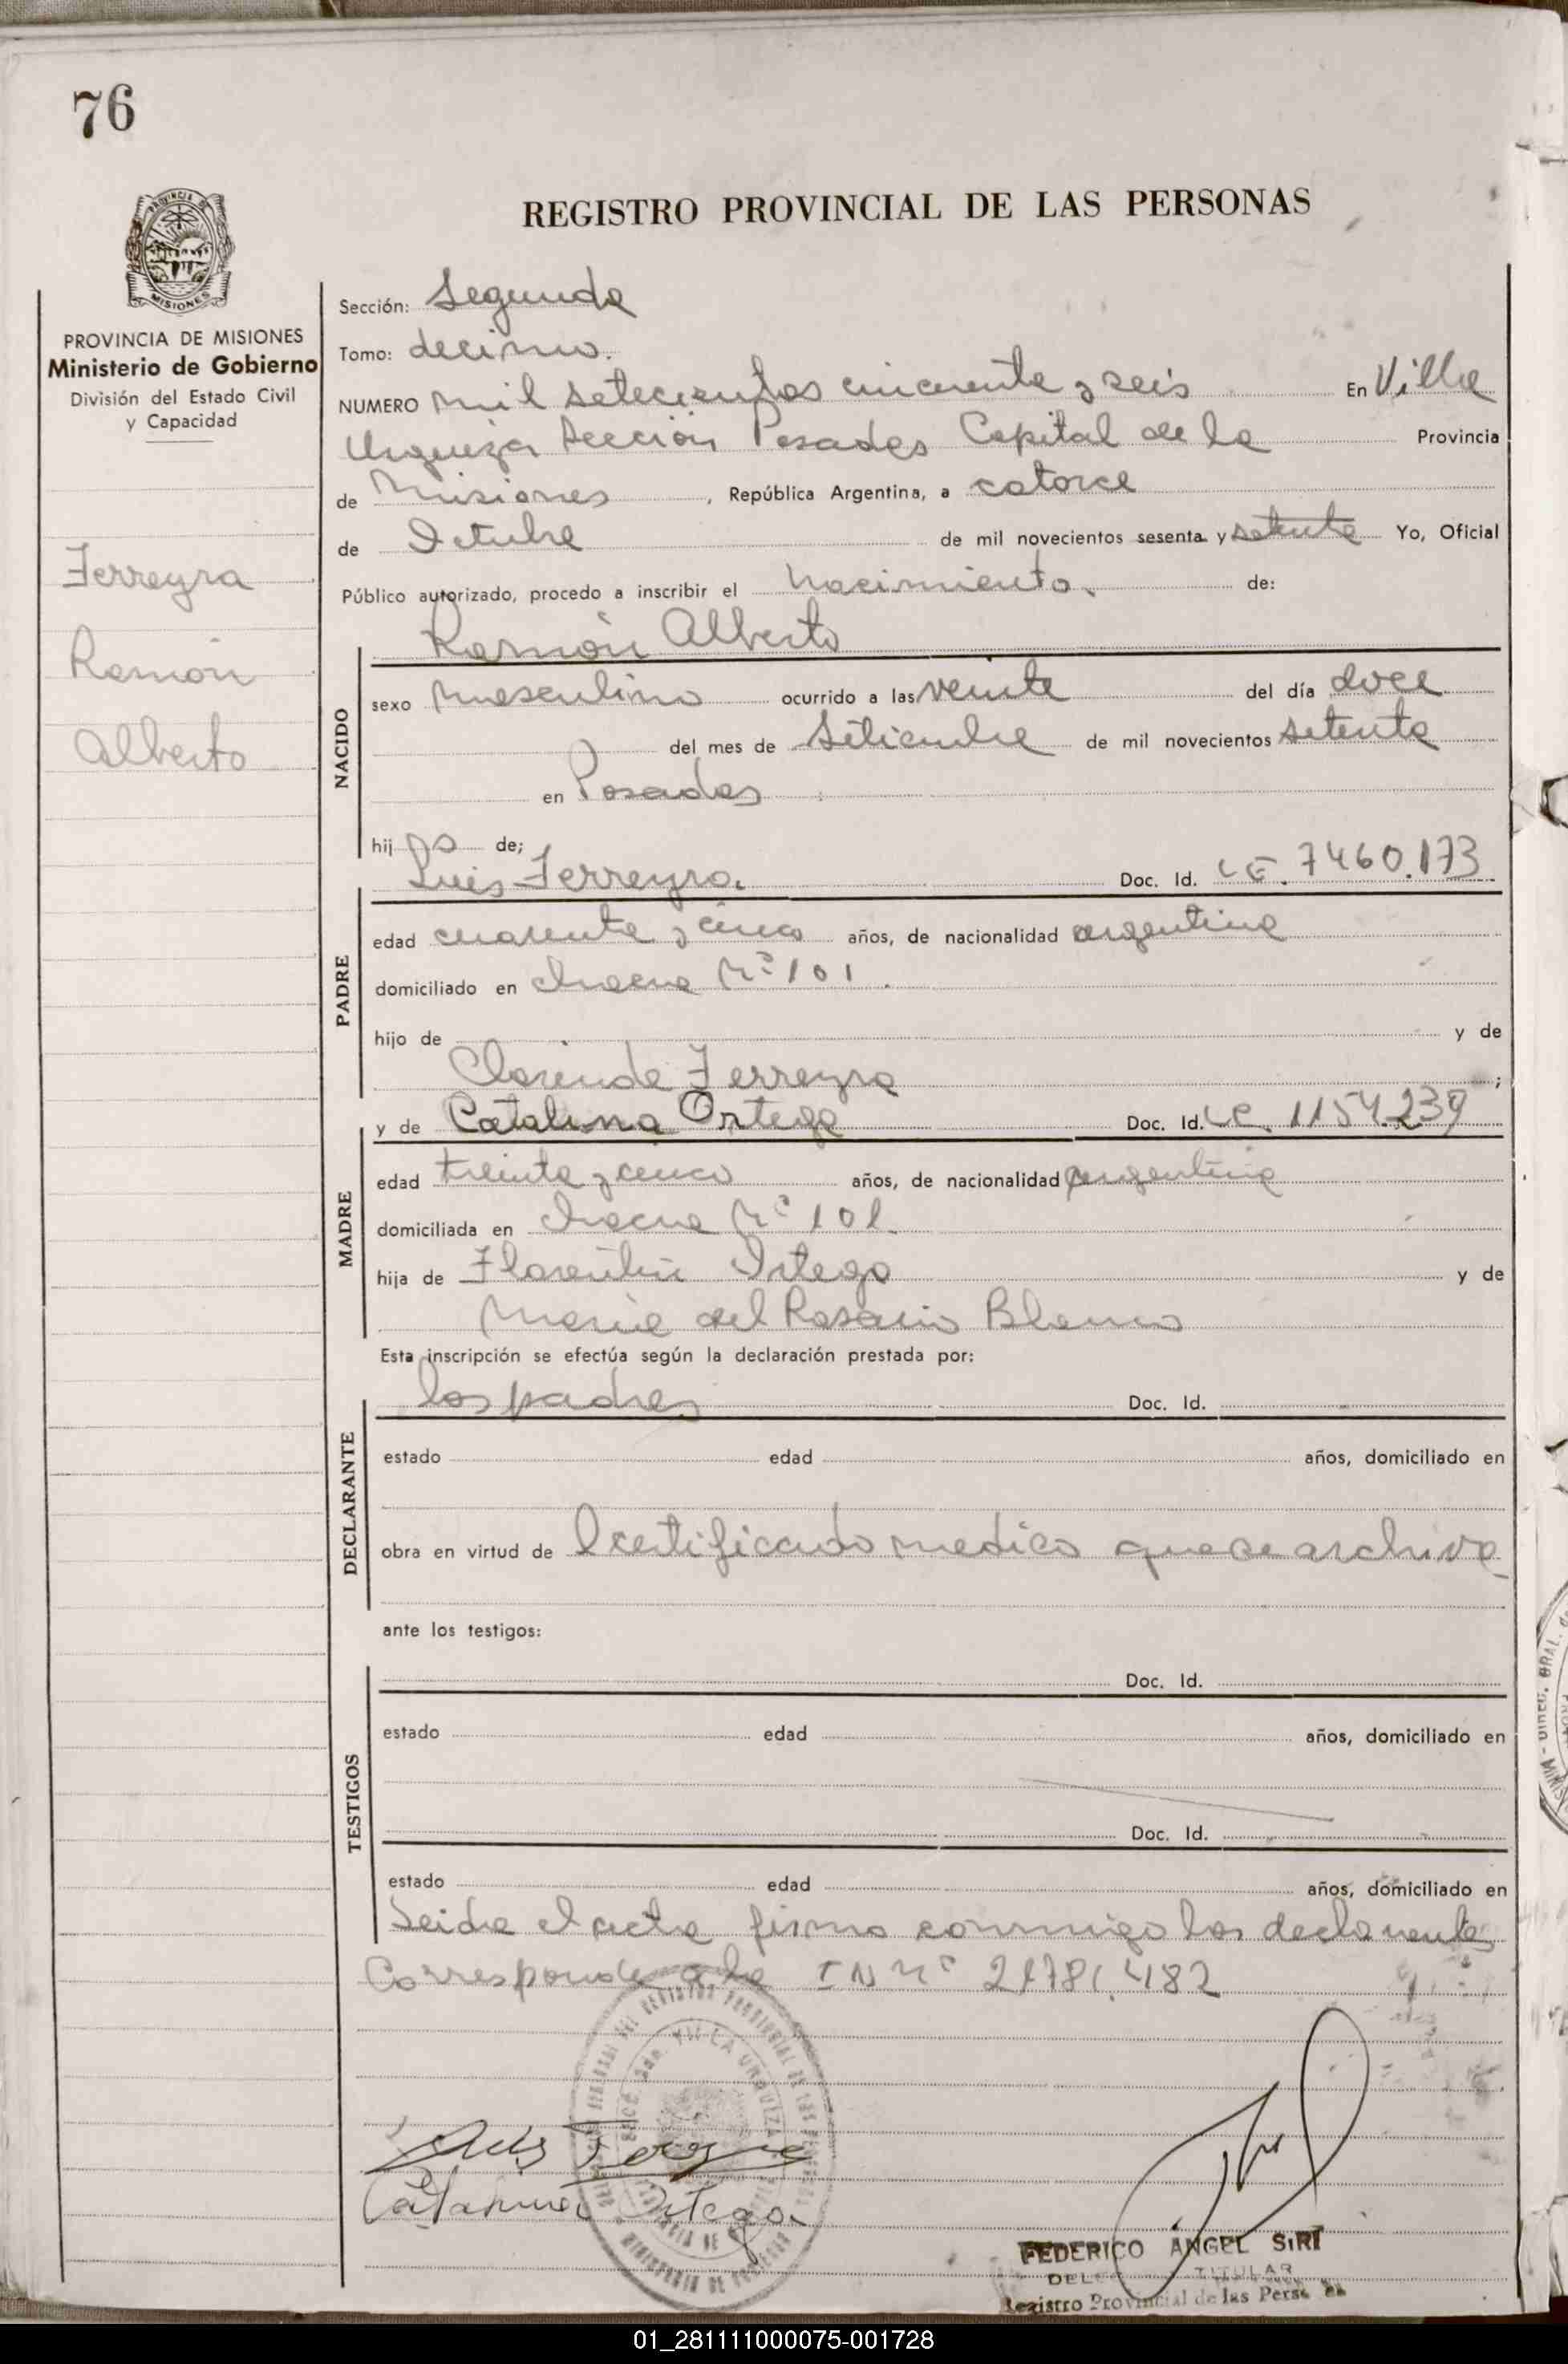 76
REGISTRO PROVINCIAL DE LAS PERSONAS
PROVINCIA DE MISIONES
PROVINCIA DE MISIONES
Ministerio de Gobierno
División del Estado Civil
y Capacidad
Ferreyra
Ramón
Alberto
Sección: Segunda
Tomo: decimo.
NUMERO mil setecientos cincuenta y seis En Villa
Urquiza Sección Posadas Capital de la Provincia
de Misiones, República Argentina, a catorce
de Octubre de mil novecientos sesenta y setenta Yo, Oficial
Público autorizado, procedo a inscribir el nacimiento de:
Ramón Alberto
NACIDO
sexo masculino ocurrido a las veinte del día doce
del mes de Setiembre de mil novecientos setenta
en Posadas
hijo de;
Luis Ferreyra Doc. Id. LE. 7460.173
PADRE
edad cuarenta y cinco años, de nacionalidad argentina
domiciliado en chacra Nº 101.
hijo de y de
Clorinda Ferreyra ;
y de Catalina Ortega Doc. Id. LC. 1154.239
MADRE
edad treinta y cinco años, de nacionalidad argentina
domiciliada en chacra Nº 101.
hija de Florentin Ortega y de
Maria del Rosario Blanco
Esta inscripción se efectúa según la declaración prestada por:
los padres Doc. Id.
DECLARANTE
estado edad años, domiciliado en
obra en virtud de certificado medico que se archiva
ante los testigos:
Doc. Id.
TESTIGOS
estado edad años, domiciliado en
Doc. Id.
estado edad años, domiciliado en
Leida el acta firma conmigo los declarantes
Corresponde a la IN Nº 21781.482
VILLA URQUIZA
Luis Ferreyra
Catalina Ortega
FEDERICO ANGEL SIRI
TITULAR
Registro Provincial de las Pers
01_281111000075-001728